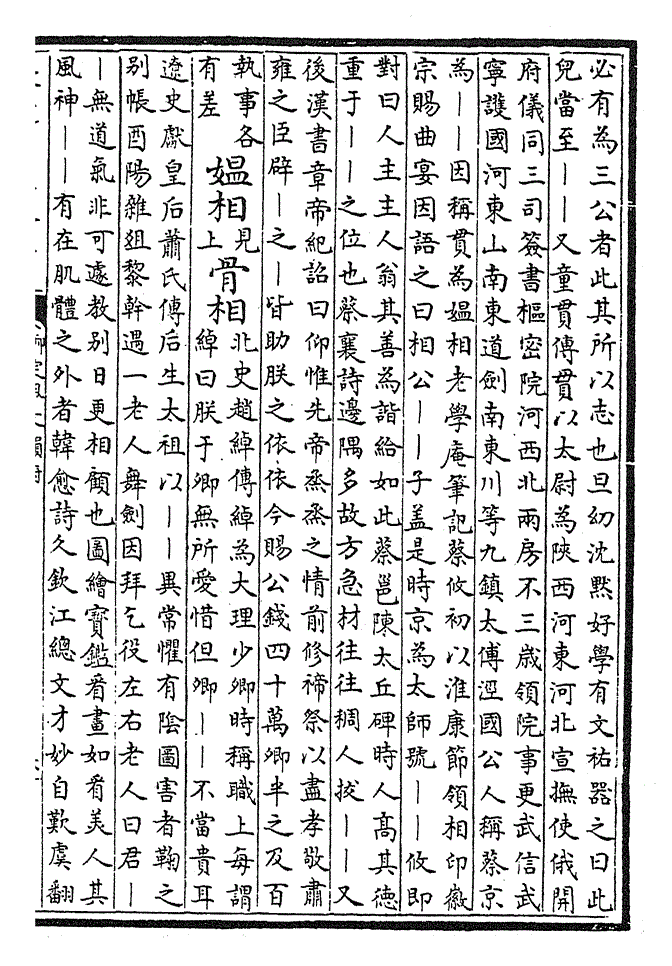 必有為三公者此其所以志也旦幼沈黙好學有文祐器之曰此
兒當至――又童貫傳貫以太尉為陜西河東河北宣撫使俄開
府儀同三司簽書樞密院河西北兩房不三歳領院事更武信武
寧護國河東山南東道劍南東川等九鎮太傅涇國公人稱蔡京
為――因稱貫為媪相老學庵筆記蔡攸初以淮康節領相印徽
宗賜曲宴因語之曰相公――子盖是時京為太師號――攸即
對曰人主主人翁其善為諧給如此蔡邕陳太丘碑時人髙其德
重于――之位也蔡襄詩邊隅多故方急材往往稠人拔――又
後漢書章帝紀詔曰仰惟先帝烝烝之情前修禘祭以盡孝敬肅
雍之臣辟―之―皆助朕之依依今賜公錢四十萬卿半之及百
執事各有差
媪相見上
骨相北史趙綽傳綽為大理少卿時稱職上每謂綽曰朕于卿無所愛惜但卿――不當貴耳
遼史獻皇后蕭氏傳后生太祖以――異常懼有陰圖害者鞠之
别帳酉陽雜俎黎幹遇一老人舞劍因拜乞役左右老人曰君―
―無道氣非可遽教别日更相顧也圖繪寳鑑看畫如看美人其
風神――有在肌體之外者韓愈詩久欽江總文才妙自歎虞翻